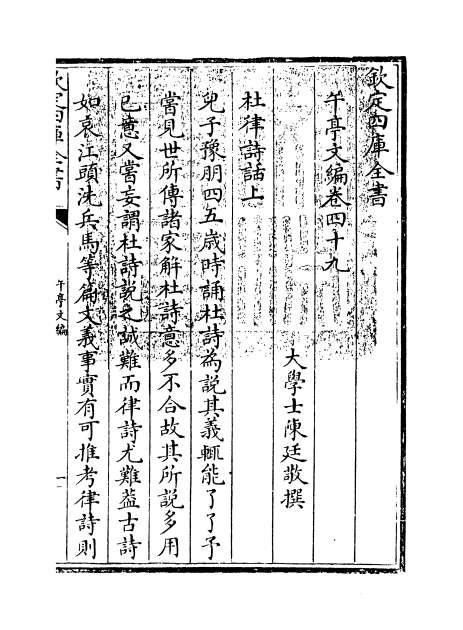 欽定四庫全書
午亭文編卷四十九
大學士陳廷敬撰
杜律詩話上
兒子豫朋四五歲時誦杜詩為說其義輒能了了予
嘗見世所傳諸家解杜詩意多不合故其所說多用
已意又嘗妄謂杜詩說之誠難而律詩尤難葢古詩
如哀江頭洗兵馬等篇文義事實有可推考律詩則
欽定四庫全書
午亭文編
一